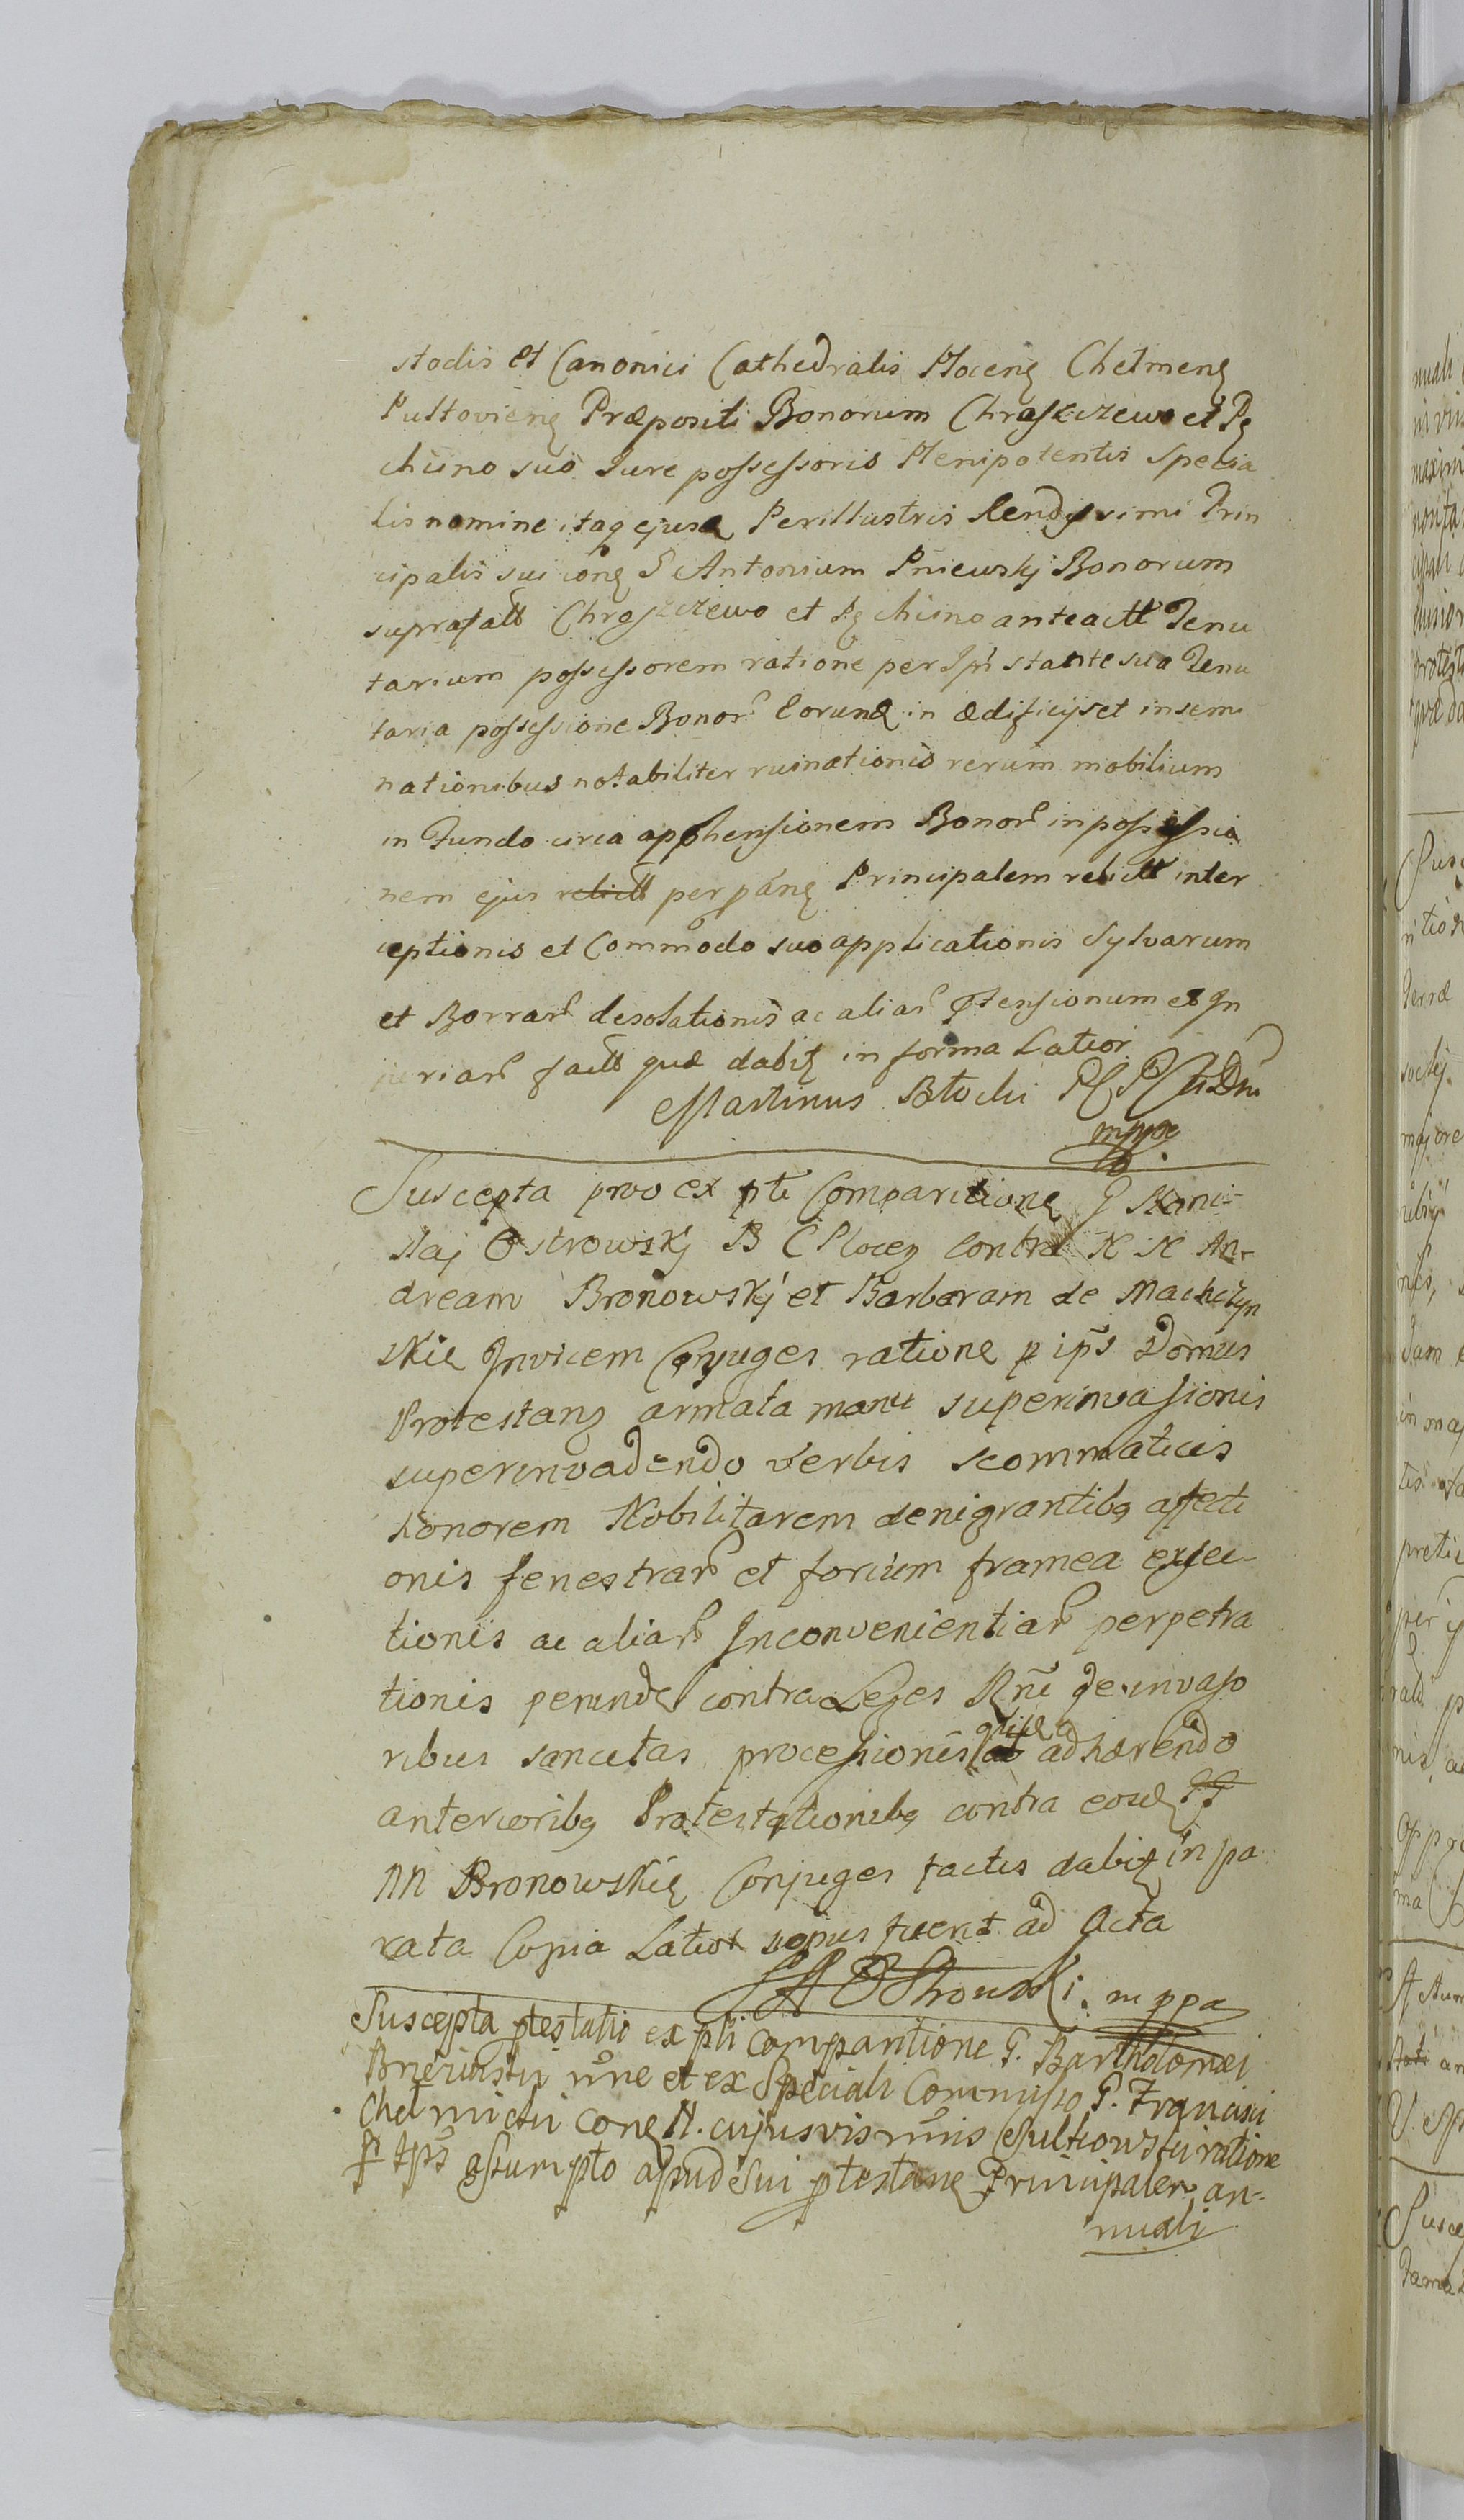 stodis et Canonici Cathedralis Płoceng Chełmeng
Pułtovieng Præpositi Bonorum Chrașczewo et Pę
chiino suo Jure possessoris Plenipotentis Specia
lis nomine itaq ejusd Perillustris Rendissimi Prin
cipalis sui cong G Antonium Pniewskj Bonorum
suprafatt Chrașczewo et Pęchiino anteactt Tenu
tarium possessorem ratione per Ipm stante sua Tenu
taria possessione Bonor Eorund in ædificijs et insemi
nationibus notabiliter ruinationis rerum mobilium
in Fundo circa apphensionem Bonor in possessio
nem ejus relictt per pang Principalem relictt inter
ceptionis et Commodo suo applicationis Sylvarum
et Borrar desolationis ac aliar ptensionum et In
juriar factt quæ dabit in forma Latior
Martinus Błocki
mppa
Suscepta pro ex pti Comparitione G Stani-
slaj Ostrowskj B C Płoceng contra N N An-
dream Bronowskj et Barbaram de Machczyn
skie Invicem Conjuges ratione p ips Domus
Protestang armata manu superinvasionis
superinvadendo verbis scommaticis
honorem Nobilitarem denigrantibq affecti
onis fenestrar et forium framea exsec-
tionis ac aliar Inconvenientiar perpetra
tionis perinde contra Leges Rni de invaso
ribus sancitas processionis adhærendo
anterioribq Protestationibq contra eosd
NN Bronowskie Conjuges factis dabit in pa
rata Copia Latior si opus fuerit ad Acta
SA Ostrowski mppa
Suscepta ptestatio ex pti comparitione G. Bartholomæi
nne et ex Speciali Commisso G. Francisci
Chełmicki cong N. cujusvis nnis Sułkowski ratione
p Ips assumpto apud Sui ptestang Principalem an-
nuali